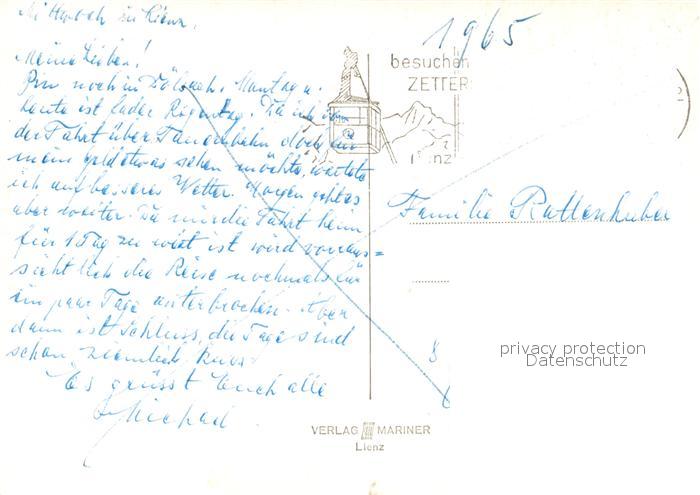 Mittwoch in Lienz.
Meine Lieben!
Bin noch in Dölsach. Montag u.
heute ist leider Regentag. Da ich
der Fahrt über Tauernbahn doch für
mein Geld etwas sehen möchte, wartete
ich auf besseres Wetter. Morgen geht es
aber weiter. Da mir die Fahrt heim
für 1 Tag zu weit ist wird voraus=
sichtlich die Reise nochmals für
ein paar Tage unterbrochen. Aber
dann ist Schluss, die Tage sind
schon ziemlich kurz.
Es grüsst Euch alle
Michael
1965
besuchen
ZETTERS
Lienz
Familie Rattenhuber
8
8
privacy protection
Datenschutz
VERLAG MARINER
Lienz